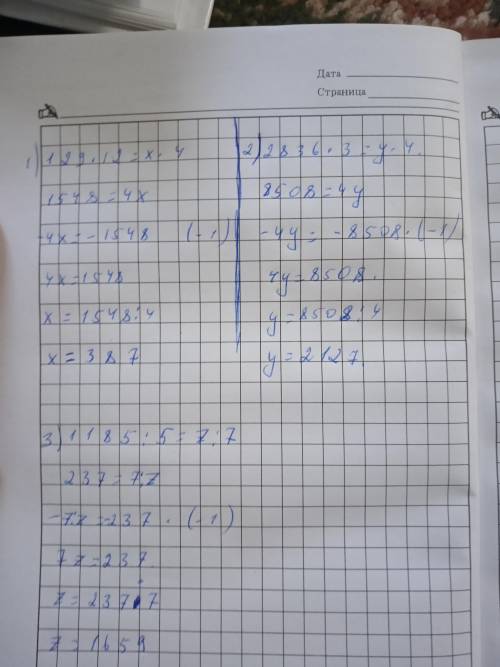 Дата
Страница
1) 129·12=x·4
1548=4x
-4x=-1548 (-1)
4x=1548
x=1548:4
x=387
2) 2836·3=y·4.
8508=4y
-4y=-8508·(-1)
4y=8508.
y=8508:4
y=2127.
3) 1185:5=z:7
237=7:z
-7:z=-237·(-1)
7z=237
z=237·7
z=1659